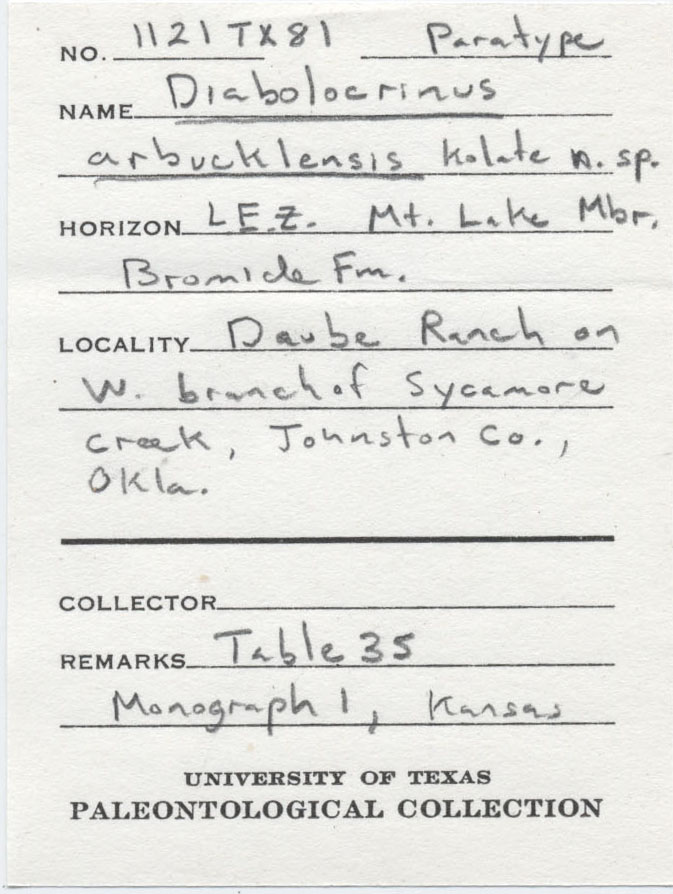 NO. 1121TX81 Paratype
NAME Diabolocrinus
arbucklensis Kolate n. sp.
HORIZON L.E.Z. Mt. Lake Mbr.
Bromide Fm.
LOCALITY Daube Ranch on
W. branch of Sycamore
Creek, Johnston Co.,
Okla.
COLLECTOR
REMARKS Table 35
Monograph 1, Kansas
UNIVERSITY OF TEXAS
PALEONTOLOGICAL COLLECTION